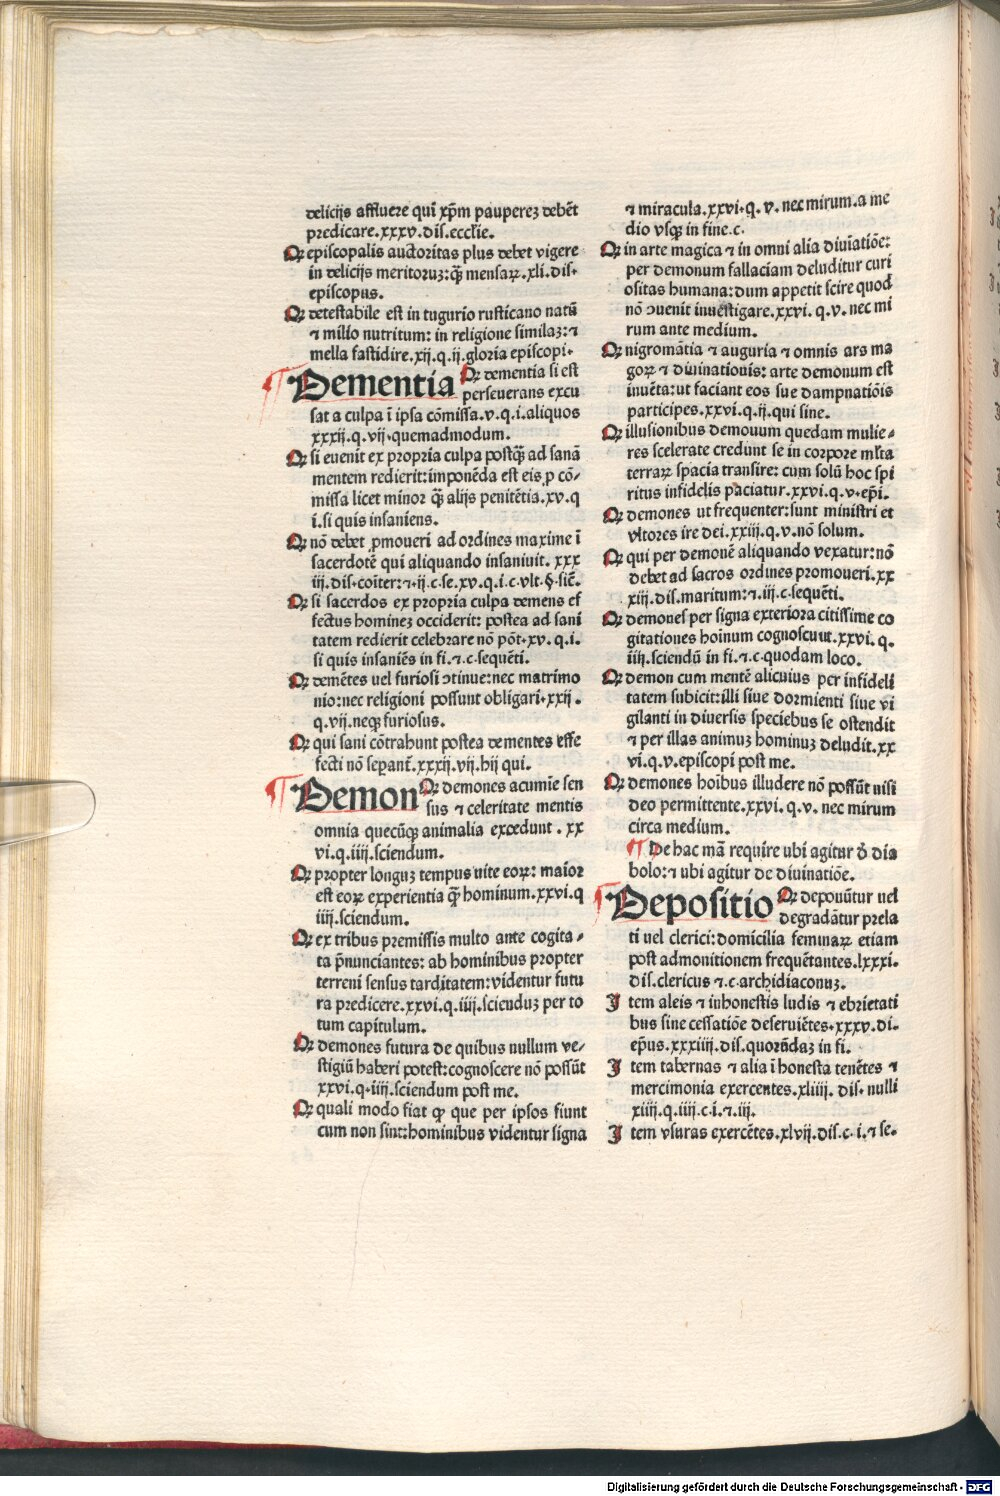 deliciis affluere qui xp̄m pauperez debēt
predicare.xxxv.dis.eccľie.
Qꝛ episcopalis auctoritas plus debet vigere
in deliciis meritoruz:q̄ȝ mensaꝝ.xli.dis.
episcopus.
Qꝛ detestabile est in tugurio rusticano natū
⁊ millo nutritum: in religione similaz:⁊
mella fastidire.xij.q.ij.gloria episcopi.
¶ Dementia Qꝛ dementia si est
perseuerans excu
sat a culpa ī ipsa cōmissa.v.q.i.aliquos
xxxij.q.vij.quemadmodum.
Qꝛ si euenit ex propria culpa postq̄ȝ ad sanā
mentem redierit:imponēda est eis ꝓ cō-
missa licet minor q̄ȝ alijs penitētia.xv.q
i.si quis insaniens.
Qꝛ nō debet ꝓmoueri ad ordines maxime ī
sacerdotē qui aliquando insaniuit.xxx
iij.dis.coīter:⁊.ij.c.se.xv.q.i.c.vlt.§.siē.
Qꝛ si sacerdos ex propria culpa demens ef
fectus hominez occiderit: postea ad sani
tatem redierit celebrare nō pōt.xv.q.i.
si quis insaniēs in fi.⁊.c.sequēti.
Qꝛ demētes uel furiosi ↄtinue:nec matrimo
nio:nec religioni possunt obligari.xxij.
q.vij.neqȝ furiosus.
Qꝛ qui sani cōtrahunt postea dementes esse
fecti nō sepanť.xxxij.vij.hij qui.
¶ Demon Qꝛ demones acumīe sen
sus ⁊ celeritate mentis
omnia quecūqȝ animalia excedunt.xx
vi.q.iiij.sciendum.
Qꝛ propter longuz tempus uite eoꝝ: maior
est eoꝝ experientia q̄ȝ hominum.xxvi.q
iiij.sciendum.
Qꝛ ex tribus premissis multo ante cogita-
ta p̄nunciantes: ab hominibus propter
terreni sensus tarditatem:videntur futu
ra predicere.xxvi.q.iiij.scienduz per to
tum capitulum.
Qꝛ demones futura de quibus nullum ve-
stigiū haberi potest:cognoscere nō possūt
xxvi.q.iiij.sciendum post me.
Qꝛ quali modo fiat ꝙ que per ipsos fiunt
cum non sint:hominibus videntur signa
⁊ miracula.xxvi.q.v.nec mirum.a me
dio vsqȝ in fine.c.
Qꝛ in arte magica ⁊ in omni alia diuīatiōe:
per demonum fallaciam deluditur curi
ositas humana:dum appetit scire quod
nō ↄuenit inuestigare.xxvi.q.v.nec mi
rum ante medium.
Qꝛ nigromātia ⁊ auguria ⁊ omnis ars ma
goꝝ ⁊ diuinationis: arte demonum est
inuēta:ut faciant eos sue dampnatiōis
participes.xxvi.q.ij.qui sine.
Qꝛ illusionibus demouum quedam mulie-
res scelerate credunt se in corpore ml̄ta
terraꝝ spacia transire: cum solū hoc spi
ritus infidelis paciatur.xxvi.q.v.ep̄i.
Qꝛ demones ut frequenter:sunt ministri et
vltores ire dei.xxiij.q.v.nō solum.
Qꝛ qui per demonē aliquando vexatur:nō
debet ad sacros ordines promoueri.xx
xiij.dis.maritum:⁊.iij.c.sequēti.
Qꝛ demones per signa exteriora citissime co
gitationes hoīnum cognoscuut.xxvi.q.
iiij.sciendū in fi.⁊.c.quodam loco.
Qꝛ demon cum mentē alicuius per infideli
tatem subicit:illi siue dormienti siue vi
gilanti in diuersis speciebus se ostendit
⁊ per illas animuz hominuz deludit.xx
vi.q.v.episcopi post me.
Qꝛ demones hoībus illudere nō possūt nisi
deo permittente.xxvi.q.v.nec mirum
circa medium.
¶ De hac mā require ubi agitur ď dia
bolo:⁊ ubi agitur de diuinatiōe.
¶ Depositio Qꝛ depouūtur uel
degradātur prela
ti uel clerici:domicilia feminaꝝ etiam
post admonitionem frequētantes.lxxxi.
dis.clericus ⁊.c.archidiaconuz.
Item aleis ⁊ inhonestis ludis ⁊ ebrietati
bus sine cessatiōe deseruiētes.xxxv.di.
ep̄us.xxxiiij.dis.quorūdaz in fi.
Item tabernas ⁊ alia īhonesta tenētes ⁊
mercimonia exercentes.xliiij.dis.nulli
xiiij.q.iiij.c.i.⁊.iij.
Item vsuras exercētes.xlvij.dis.c.i.⁊ se.
Digitalisierung gefördert durch die Deutsche Forschungsgemeinschaft - DFG